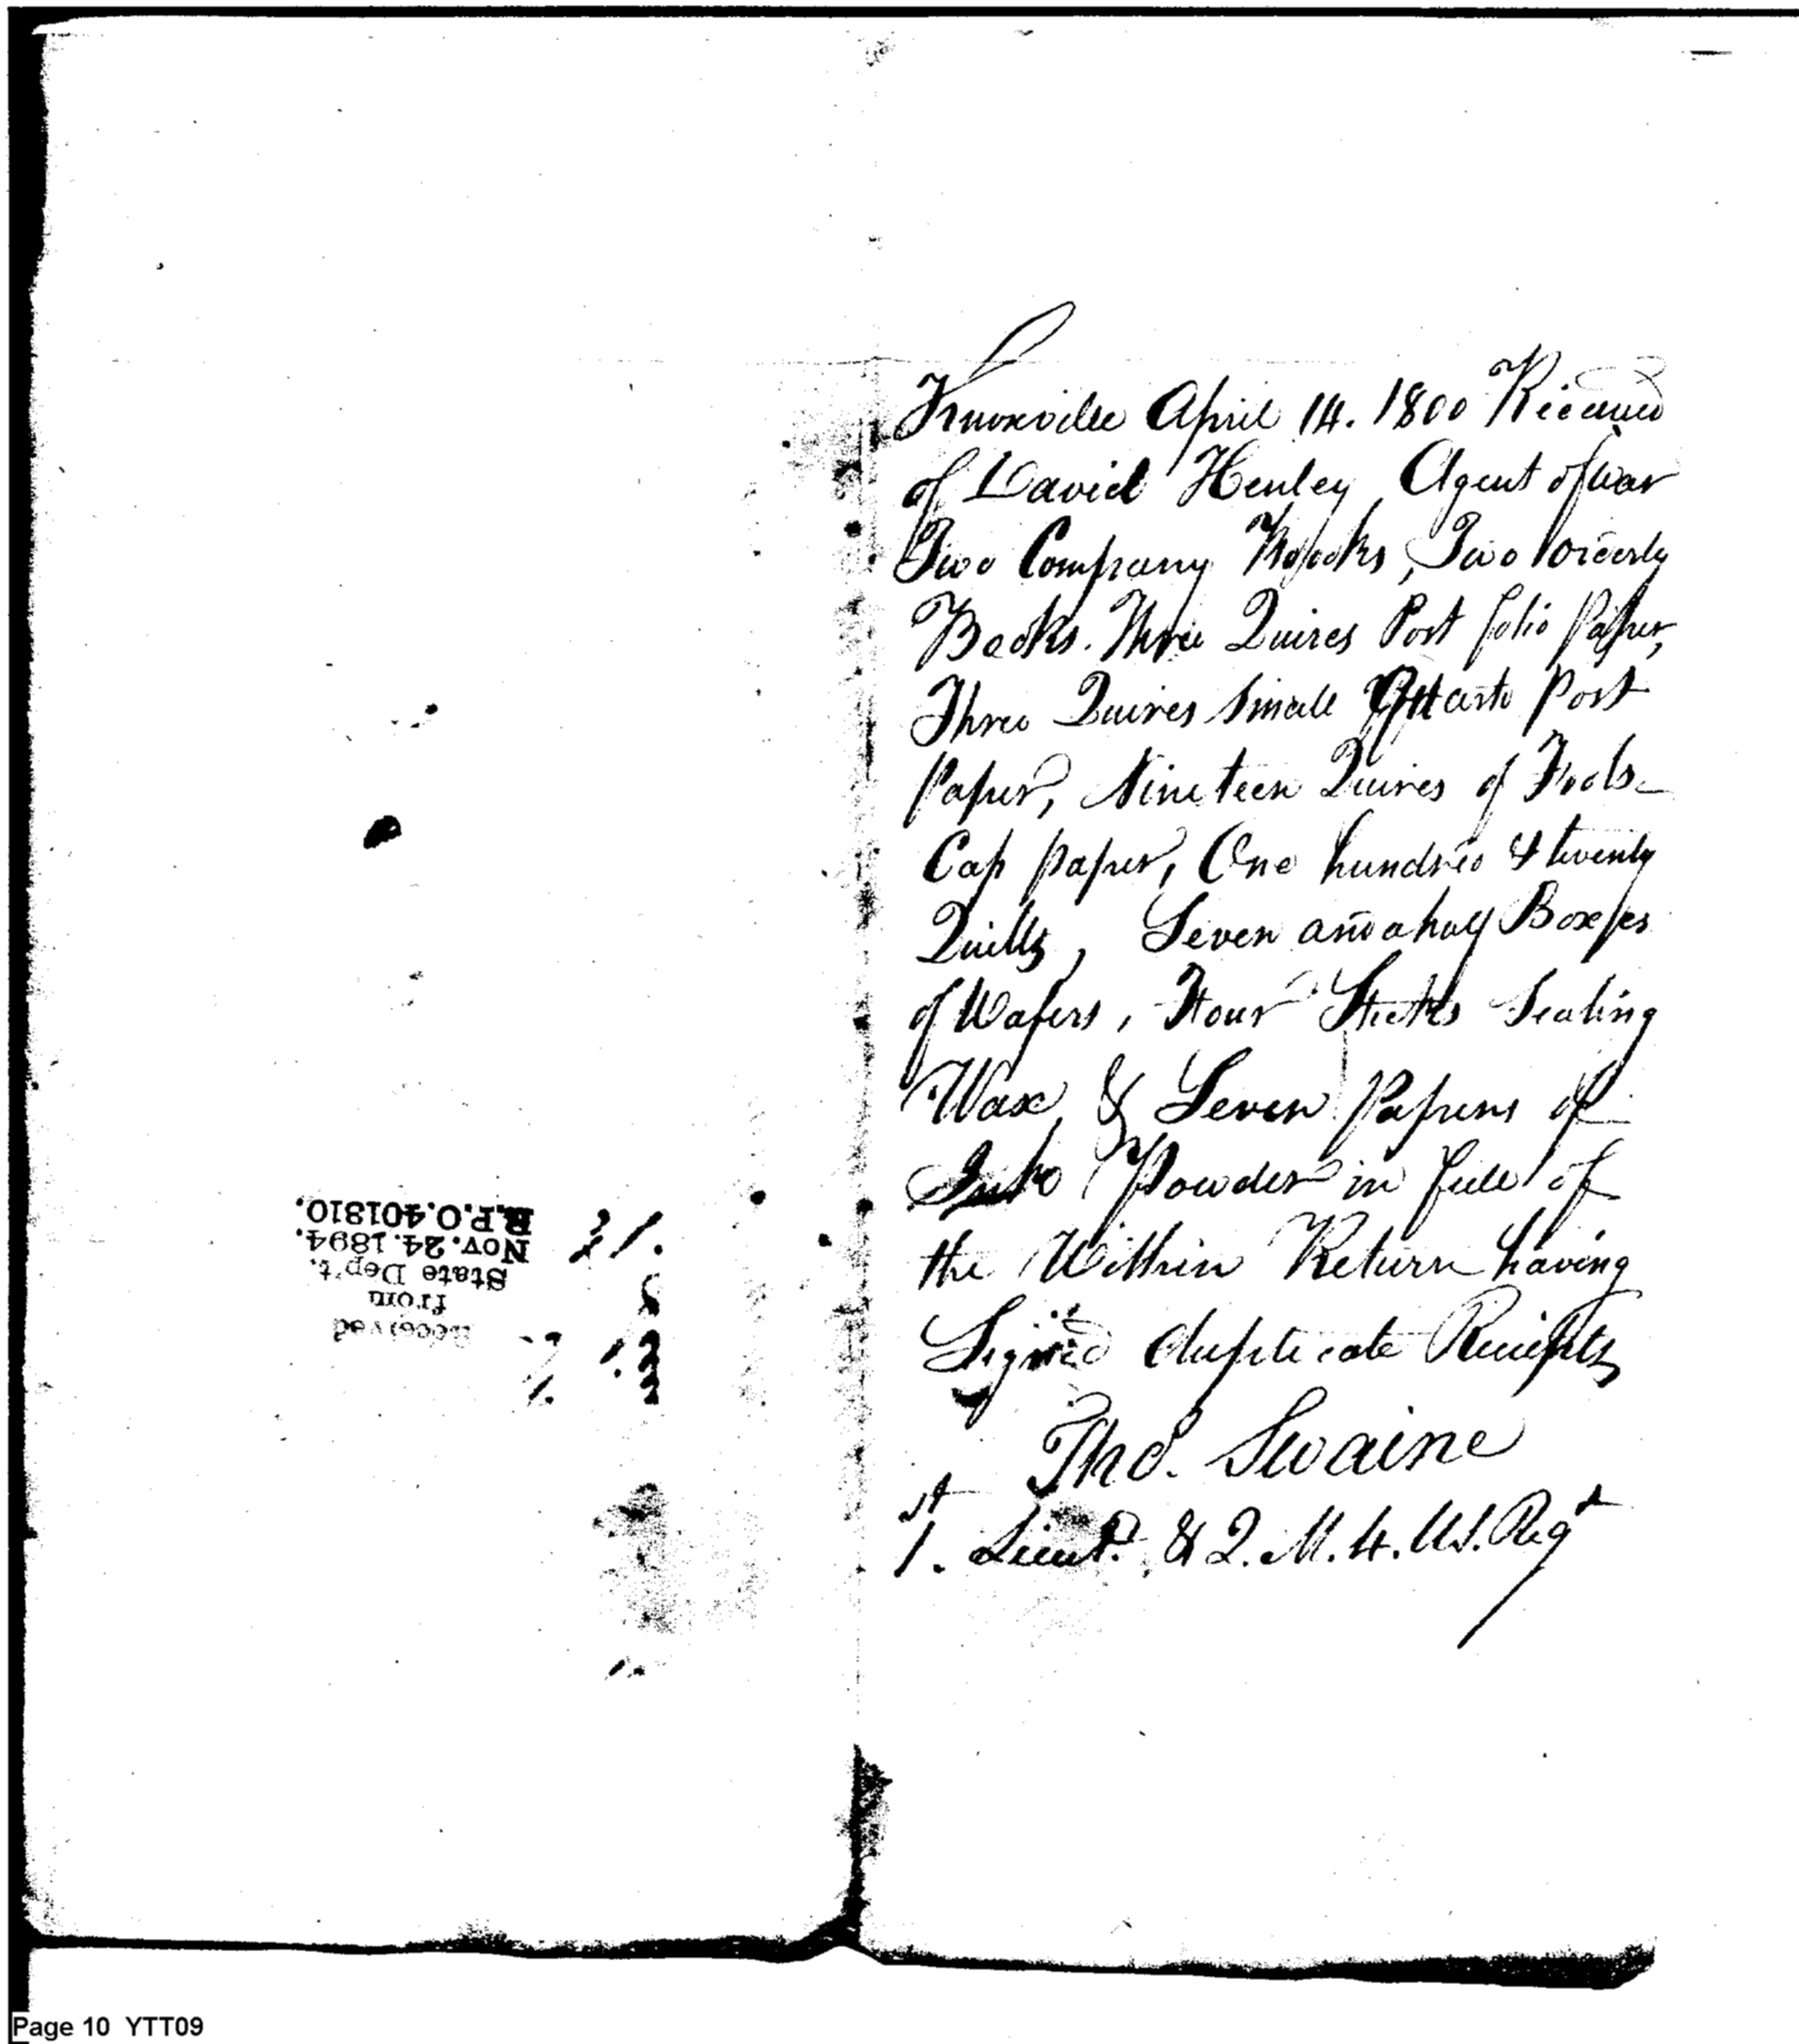 Knoxville April 14. 1800 Received
of David Henley Agent of war
Two Company Books, Two orderly
Books. Three Quires Post folio Paper,
Three Quires Small Quarto Post
Paper, Nineteen Quires of Fools-
Cap paper, One hundred & twenty
Quills, Seven and a half Boxes
of Wafers, Four Sticks Sealing
Wax & Seven Papers of
Ink Powder in full of
the Within Return having
Signed duplicate Receipts
Tho. Swaine
1.st Lieut. & Q. M. 4. U.S. Regt
Received
from
State Dep't.
Nov. 24. 1894.
R.P.O. 401810.
Page 10 YTT09